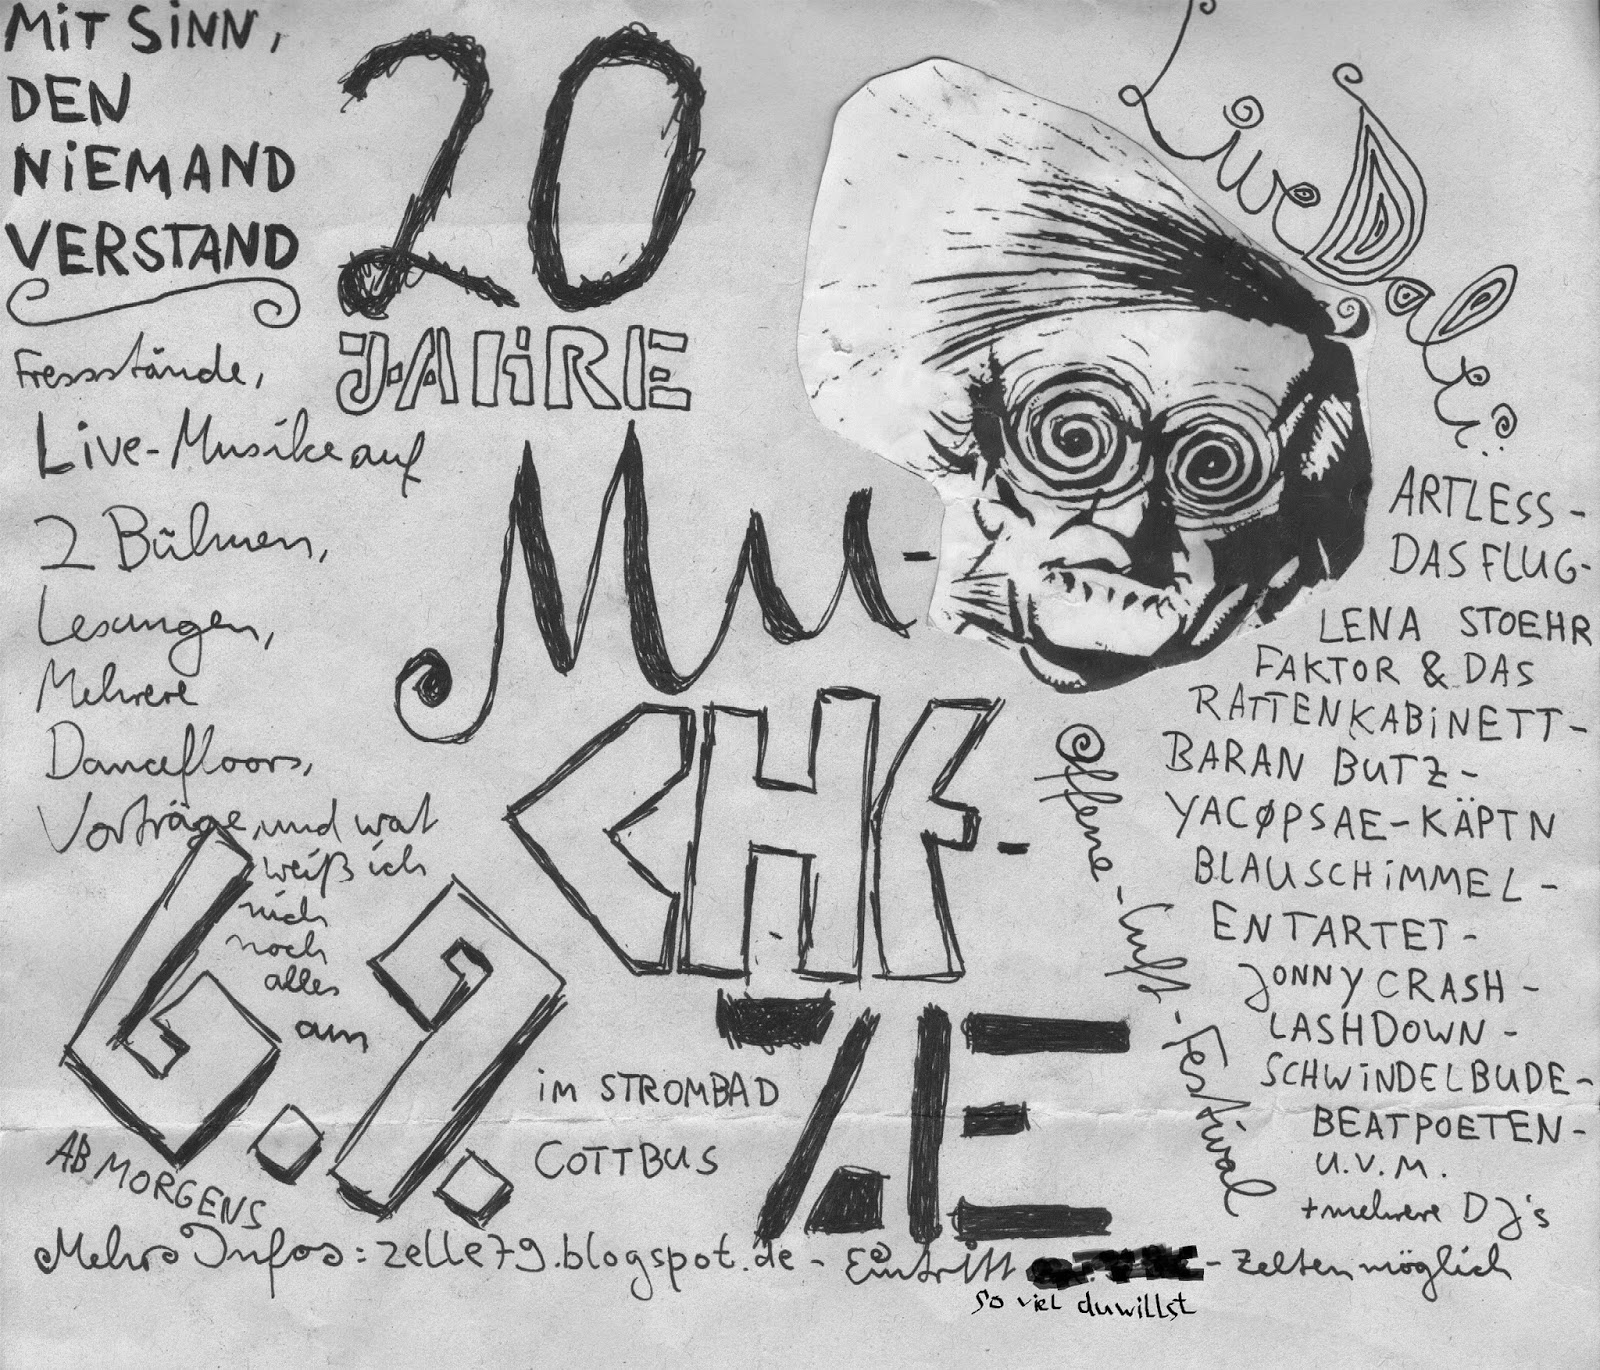 MiT SiNN,
DEN
NiEMAND
VERSTAND
20
JAHRE
Mu-
CHF-
Fressstände,
Live-Musike auf
2 Bühnen,
Lesungen,
Mehrere
Dancefloors,
Vorträge, und wat
weiß ich
nich
noch
alles
am
6.9.
AB MORGENS
im STROMBAD
COTTBUS
Live Dabei:
ARTLESS-
DAS FLUG-
LENA STOEHR
FAKTOR & DAS
RATTENKABiNETT-
BARAN BUTZ-
YACØPSAE-KÄPTN
BLAUSCHiMMEL-
ENTARTET-
JONNY CRASH-
LASHDOWN-
SCHWiNDELBUDE-
BEATPOETEN-
U.V.M.
+mehrere DJ's
Offene-Luft-Festival
Mehrs Infos: zelle79.blogspot.de - Eintritt - Zelten möglich
so viel du willst